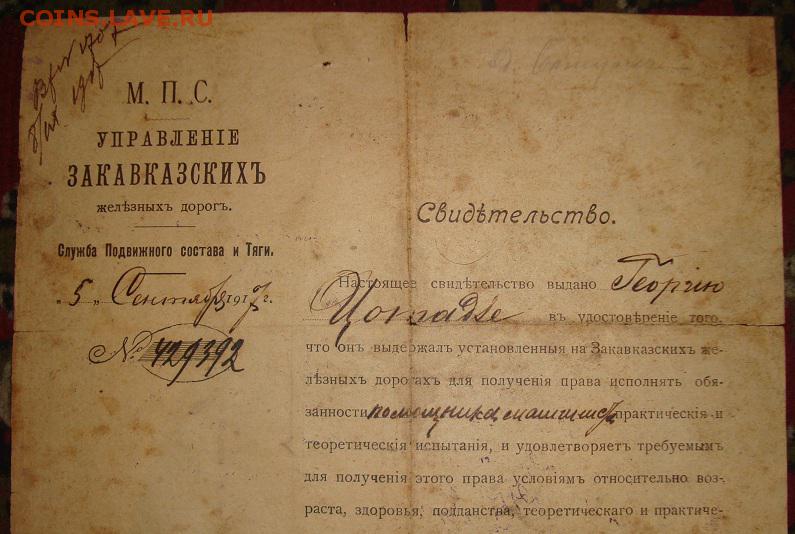 COINS.LAVE.RU
М. П. С.
УПРАВЛЕНІЕ
ЗАКАВКАЗСКИХЪ
желѣзныхъ дорогъ.
Служба Подвижного состава и Тяги.
„ 5 „ Сентября 1917 г.
№ 429392
Свидѣтельство.
Настоящее свидѣтельство выдано Георгію
въ удостовѣреніе того,
что онъ выдержалъ установленныя на Закавказскихъ же-
лѣзныхъ дорогахъ для полученія права исполнять обя-
занности помощника машинис практическія и
теоретическія испытанія, и удовлетворяетъ требуемымъ
для полученія этого права условіямъ относительно воз-
раста, здоровья, подданства, теоретическаго и практиче-